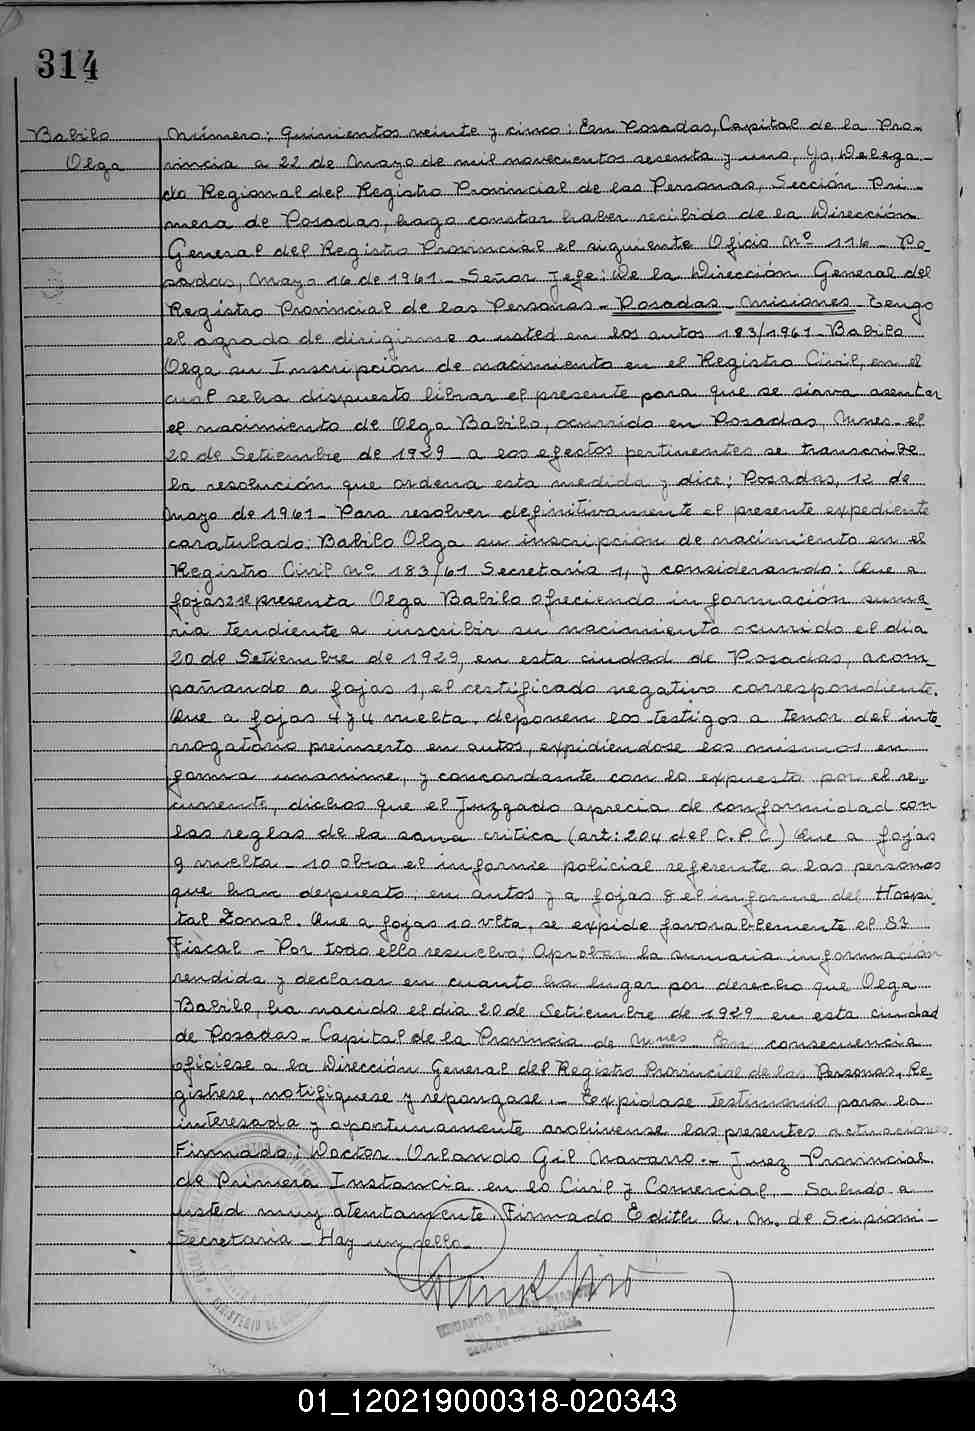 314
Babilo
Olga
Número: Quinientos veinte y cinco: En Posadas, Capital de la Pro-
vincia a 22 de Mayo de mil novecientos sesenta y uno, Yo, Delega-
do Regional del Registro Provincial de las Personas, Sección Pri-
mera de Posadas, hago constar haber recibido de la Dirección
General del Registro Provincial el siguiente Oficio Nº 116 - Po-
sadas, Mayo 16 de 1961. - Señor Jefe: De la Dirección General del
Registro Provincial de las Personas - Posadas - Misiones - Tengo
el agrado de dirigirme a usted en los autos 183/1961 - Babilo
Olga su Inscripción de nacimiento en el Registro Civil, en el
cual se ha dispuesto librar el presente para que se sirva asentar
el nacimiento de Olga Babilo, ocurrido en Posadas, Mnes. el
20 de Setiembre de 1929 - a los efectos pertinentes se transcribe
la resolución que ordena esta medida y dice: Posadas, 12 de
Mayo de 1961 - Para resolver definitivamente el presente expediente
caratulado: Babilo Olga su inscripción de nacimiento en el
Registro Civil Nº 183/61 Secretaría 1, y considerando: Que a
fojas 2 se presenta Olga Babilo ofreciendo información suma-
ria tendiente a inscribir su nacimiento ocurrido el dia
20 de Setiembre de 1929, en esta ciudad de Posadas, acom-
pañando a fojas 1, el certificado negativo correspondiente.
Que a fojas 4 y 4 vuelta, deponen los testigos a tenor del inte-
rrogatorio preinserto en autos, expidiéndose los mismos en
forma unanime, y concordante con lo expuesto por el re-
currente, dichos que el Juzgado aprecia de conformidad con
las reglas de la sana critica (art: 204 del C.P.C.) Que a fojas
9 vuelta - 10 obra el informe policial referente a las personas
que han depuesto en autos y a fojas 8 el informe del Hospi-
tal Zonal. Que a fojas 10 vlta, se expide favorablemente el Sr
Fiscal - Por todo ello resuelvo: Aprobar la sumaria información
rendida y declarar en cuanto ha lugar por derecho que Olga
Babilo, ha nacido el dia 20 de Setiembre de 1929 en esta ciudad
de Posadas - Capital de la Provincia de Mnes - En consecuencia
ofíciese a la Dirección General del Registro Provincial de las Personas, Re-
gistrese, notifiquese y repongase. - Expidase testimonio para la
interesada y oportunamente archívense las presentes actuaciones.
Firmado: Doctor Orlando Gil Navarro. - Juez Provincial
de Primera Instancia en lo Civil y Comercial. - Saludo a
usted muy atentamente. Firmado Edith A. M. de Scipioni -
Secretaria - Hay un sello -
01_120219000318-020343